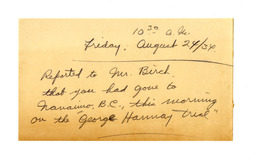 10³⁰ a.m.
Friday, August 24/34.
Reported to Mr. Birch
that you had gone to
Nanaimo, B.C., this morning
on the "George Hannay trial"